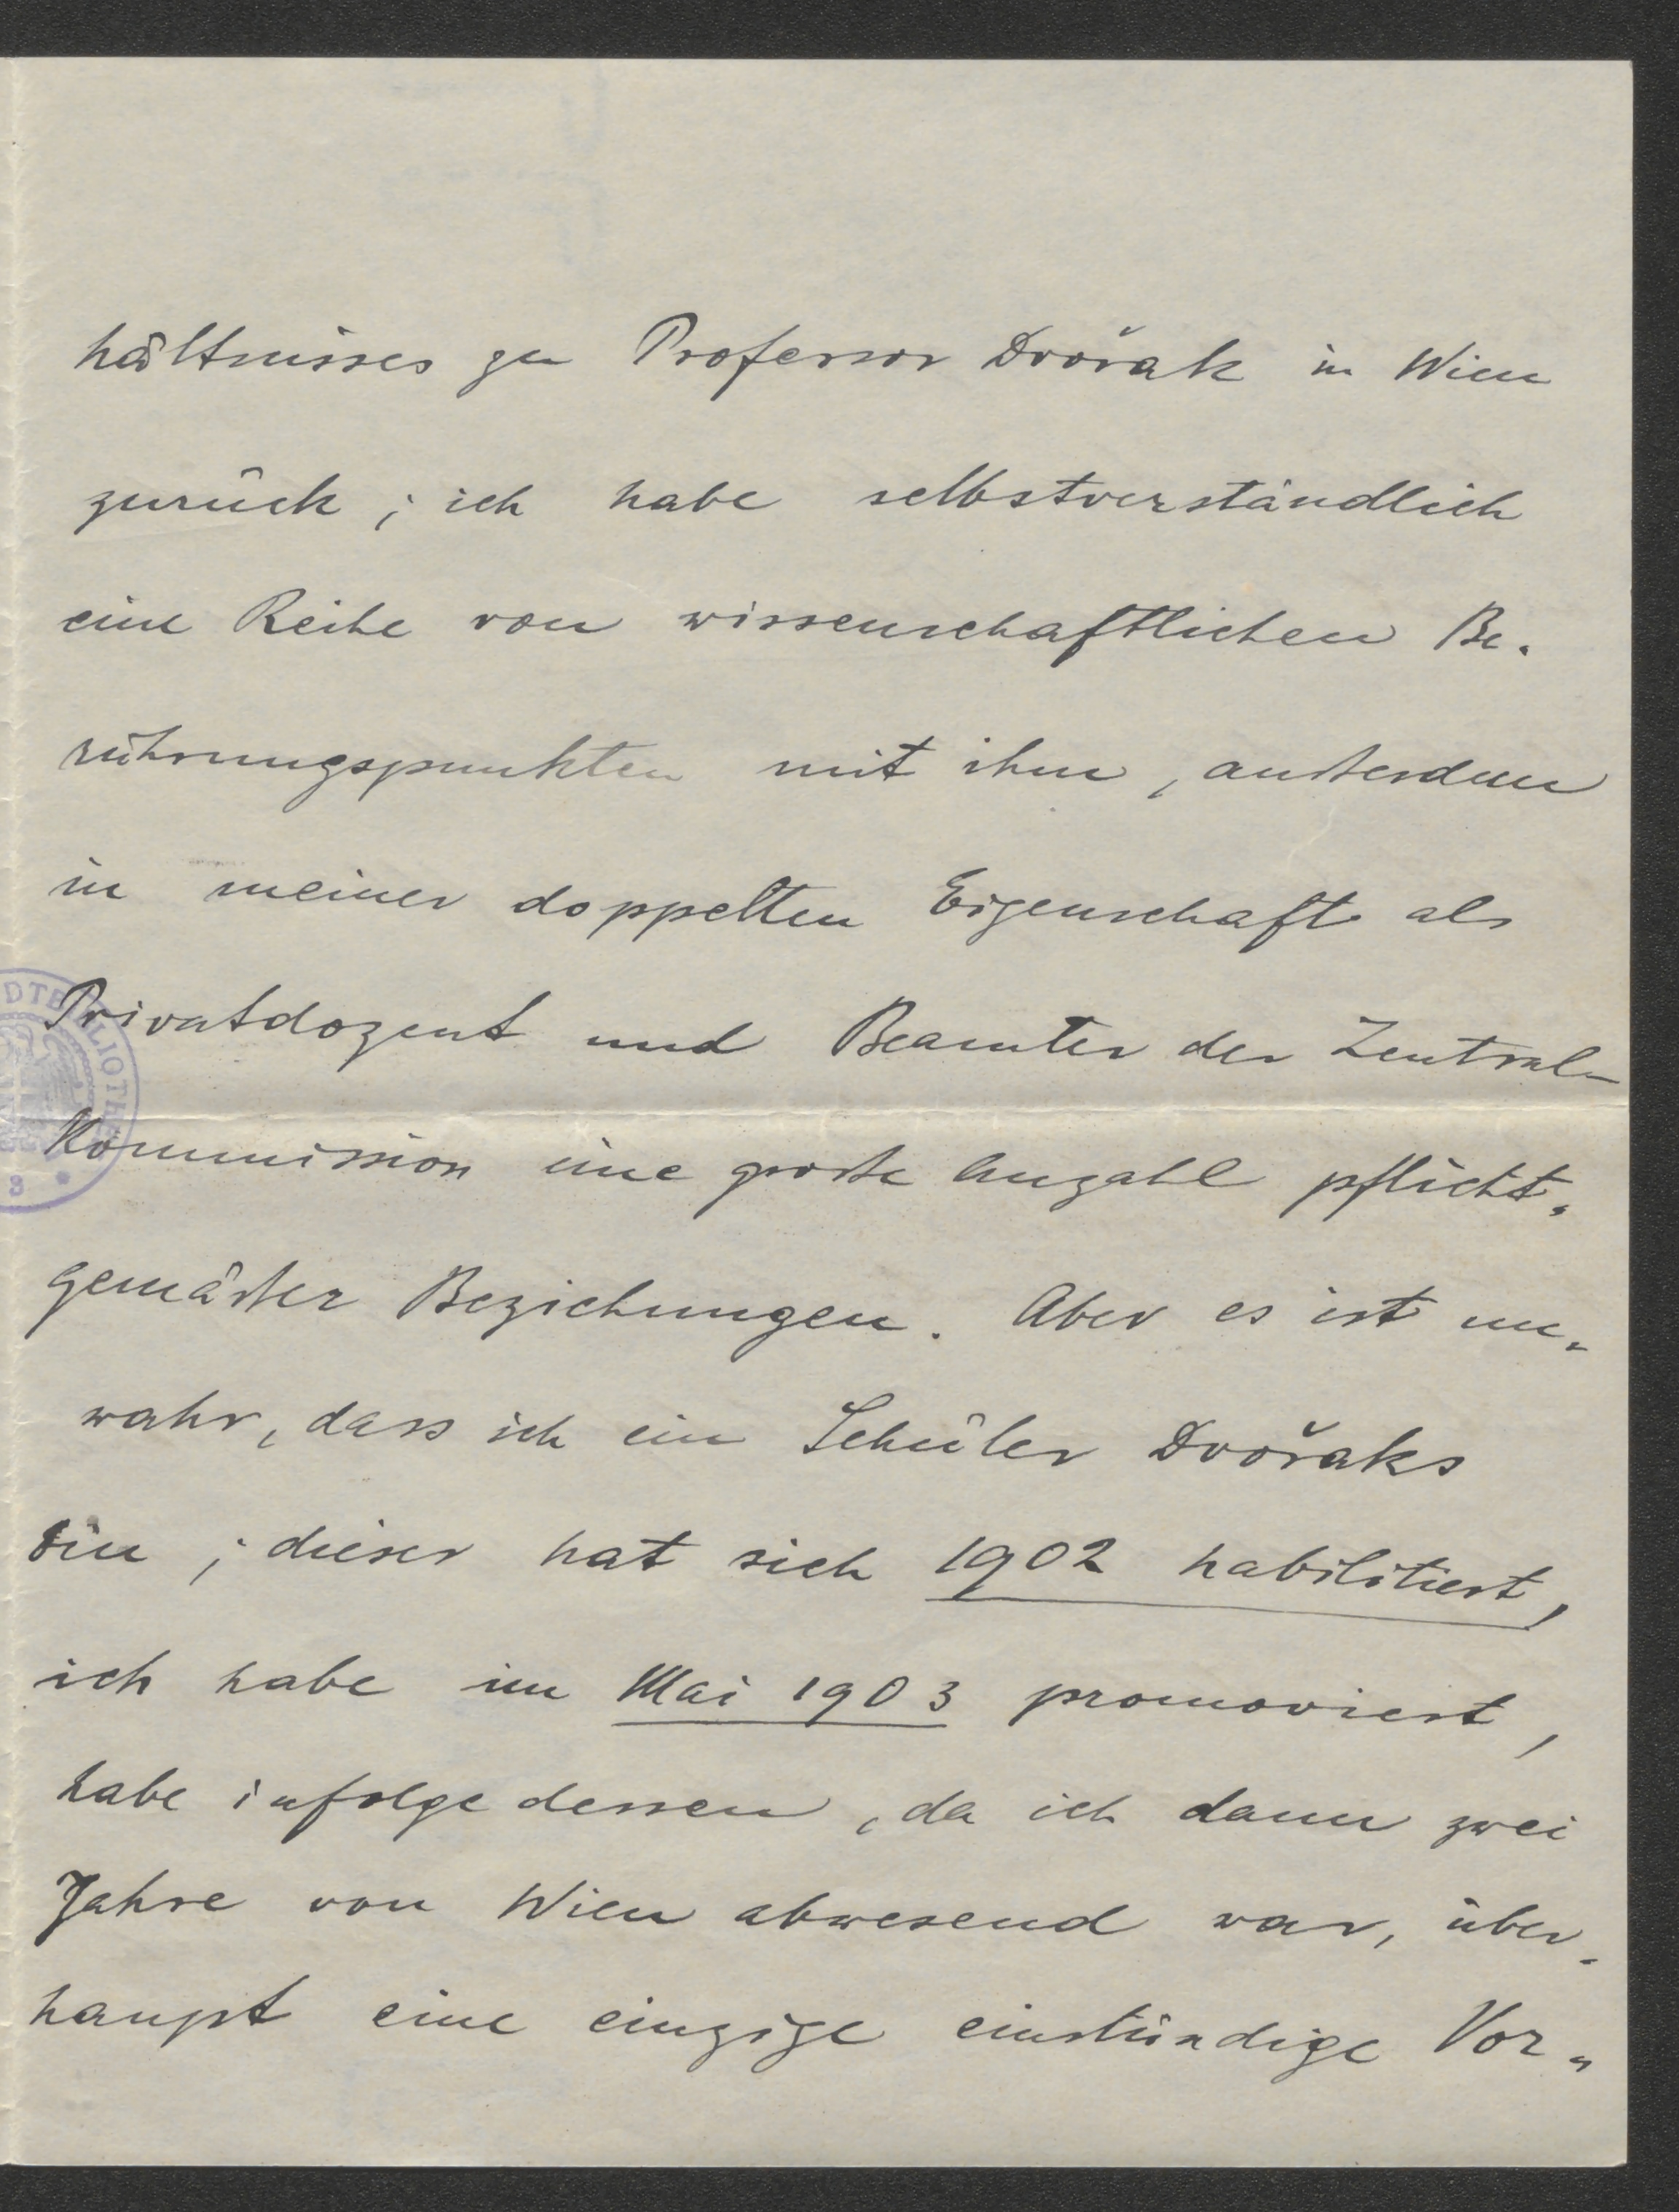 hältnisses zu Professor Dvořak in Wien
zurück; ich habe selbstverständlich
eine Reihe von wissenschaftlichen Be-
rührungspunkten mit ihm, außerdem
in meiner doppelten Eigenschaft als
Privatdozent und Beamter der Zentral-
Kommission eine große Anzahl pflicht-
gemäßer Beziehungen. Aber es ist un-
wahr, dass ich ein Schüler Dvořaks
bin; dieser hat sich 1902 habilitiert,
ich habe im Mai 1903 promoviert,
habe infolgedessen, da ich dann zwei
Jahre von Wien abwesend war, über-
haupt eine einzige einstündige Vor-